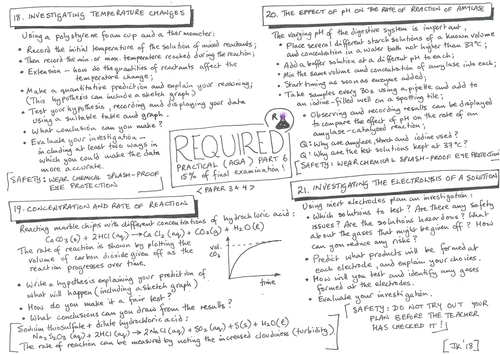 18. INVESTIGATING TEMPERATURE CHANGES
Using a polystyrene foam cup and a thermometer:
• Record the initial temperature of the solution of mixed reactants;
• Then record the min. or max. temperature reached during the reaction;
• Extension - how do the quantities of reactants affect the
temperature change;
• Make a quantitative prediction and explain your reasoning;
(This hypothesis can include a sketch graph)
• Test your hypothesis, recording and displaying your data
using a suitable table and graph.
• What conclusion can you make?
• Evaluate your investigation -
including at least two ways in
which you could make the data
more accurate.
[SAFETY: WEAR CHEMICAL SPLASH-PROOF
EYE PROTECTION
19. CONCENTRATION AND RATE OF REACTION
Reacting marble chips with different concentrations of hydrochloric acid:
CaCO3(s) + 2HCl(aq) → CaCl2(aq) + CO2(g) + H2O(l)
The rate of reaction is shown by plotting the
volume of carbon dioxide given off as the
reaction progresses over time.
• Write a hypothesis explaining your prediction of
what will happen (including a sketch graph)
• How do you make it a fair test?
• What conclusions can you draw from the results?
Sodium thiosulfate + dilute hydrochloric acid:
Na2S2O3(aq) + 2HCl(aq) → 2NaCl(aq) + SO2(aq) + S(s) + H2O(l)
The rate of reaction can be measured by noting the increased cloudiness (turbidity)
vol.
CO2
time
REQUIRED
PRACTICAL (AQA) PART 6
15% of final examination!
<PAPER 3+4>
R
20. THE EFFECT OF pH ON THE RATE OF REACTION OF AMYLASE
The varying pH of the digestive system is important,
• Place several different starch solutions of a known volume
and concentration in a water bath not higher than 37°C;
• Add a buffer solution at a different pH to each;
• Mix the same volume and concentration of amylase into each;
• Start timing as soon as enzyme added;
• Take samples every 30s using a pipette and add to
an iodine-filled well on a spotting tile;
• Observing and recording results can be displayed
to compare the effect of pH on the rate of an
amylase-catalysed reaction;
Q: Why are amylase starch and iodine used?
Q: Why are the test solutions kept at 37°C?
[SAFETY: WEAR CHEMICAL SPLASH-PROOF EYE PROTECTION
21. INVESTIGATING THE ELECTROLYSIS OF A SOLUTION
Using inert electrodes plan an investigation:
• Which solutions to test? Are there any safety
issues? Are the solutions hazardous? What
about the gases that might be given off? How
can you reduce any risks?
• Predict what products will be formed at
each electrode, and explain your choices.
• How will you test and identify any gases
formed at the electrodes.
• Evaluate your investigation.
[SAFETY: DO NOT TRY OUT YOUR
PLAN BEFORE THE TEACHER
HAS CHECKED IT!]
[JK'18]